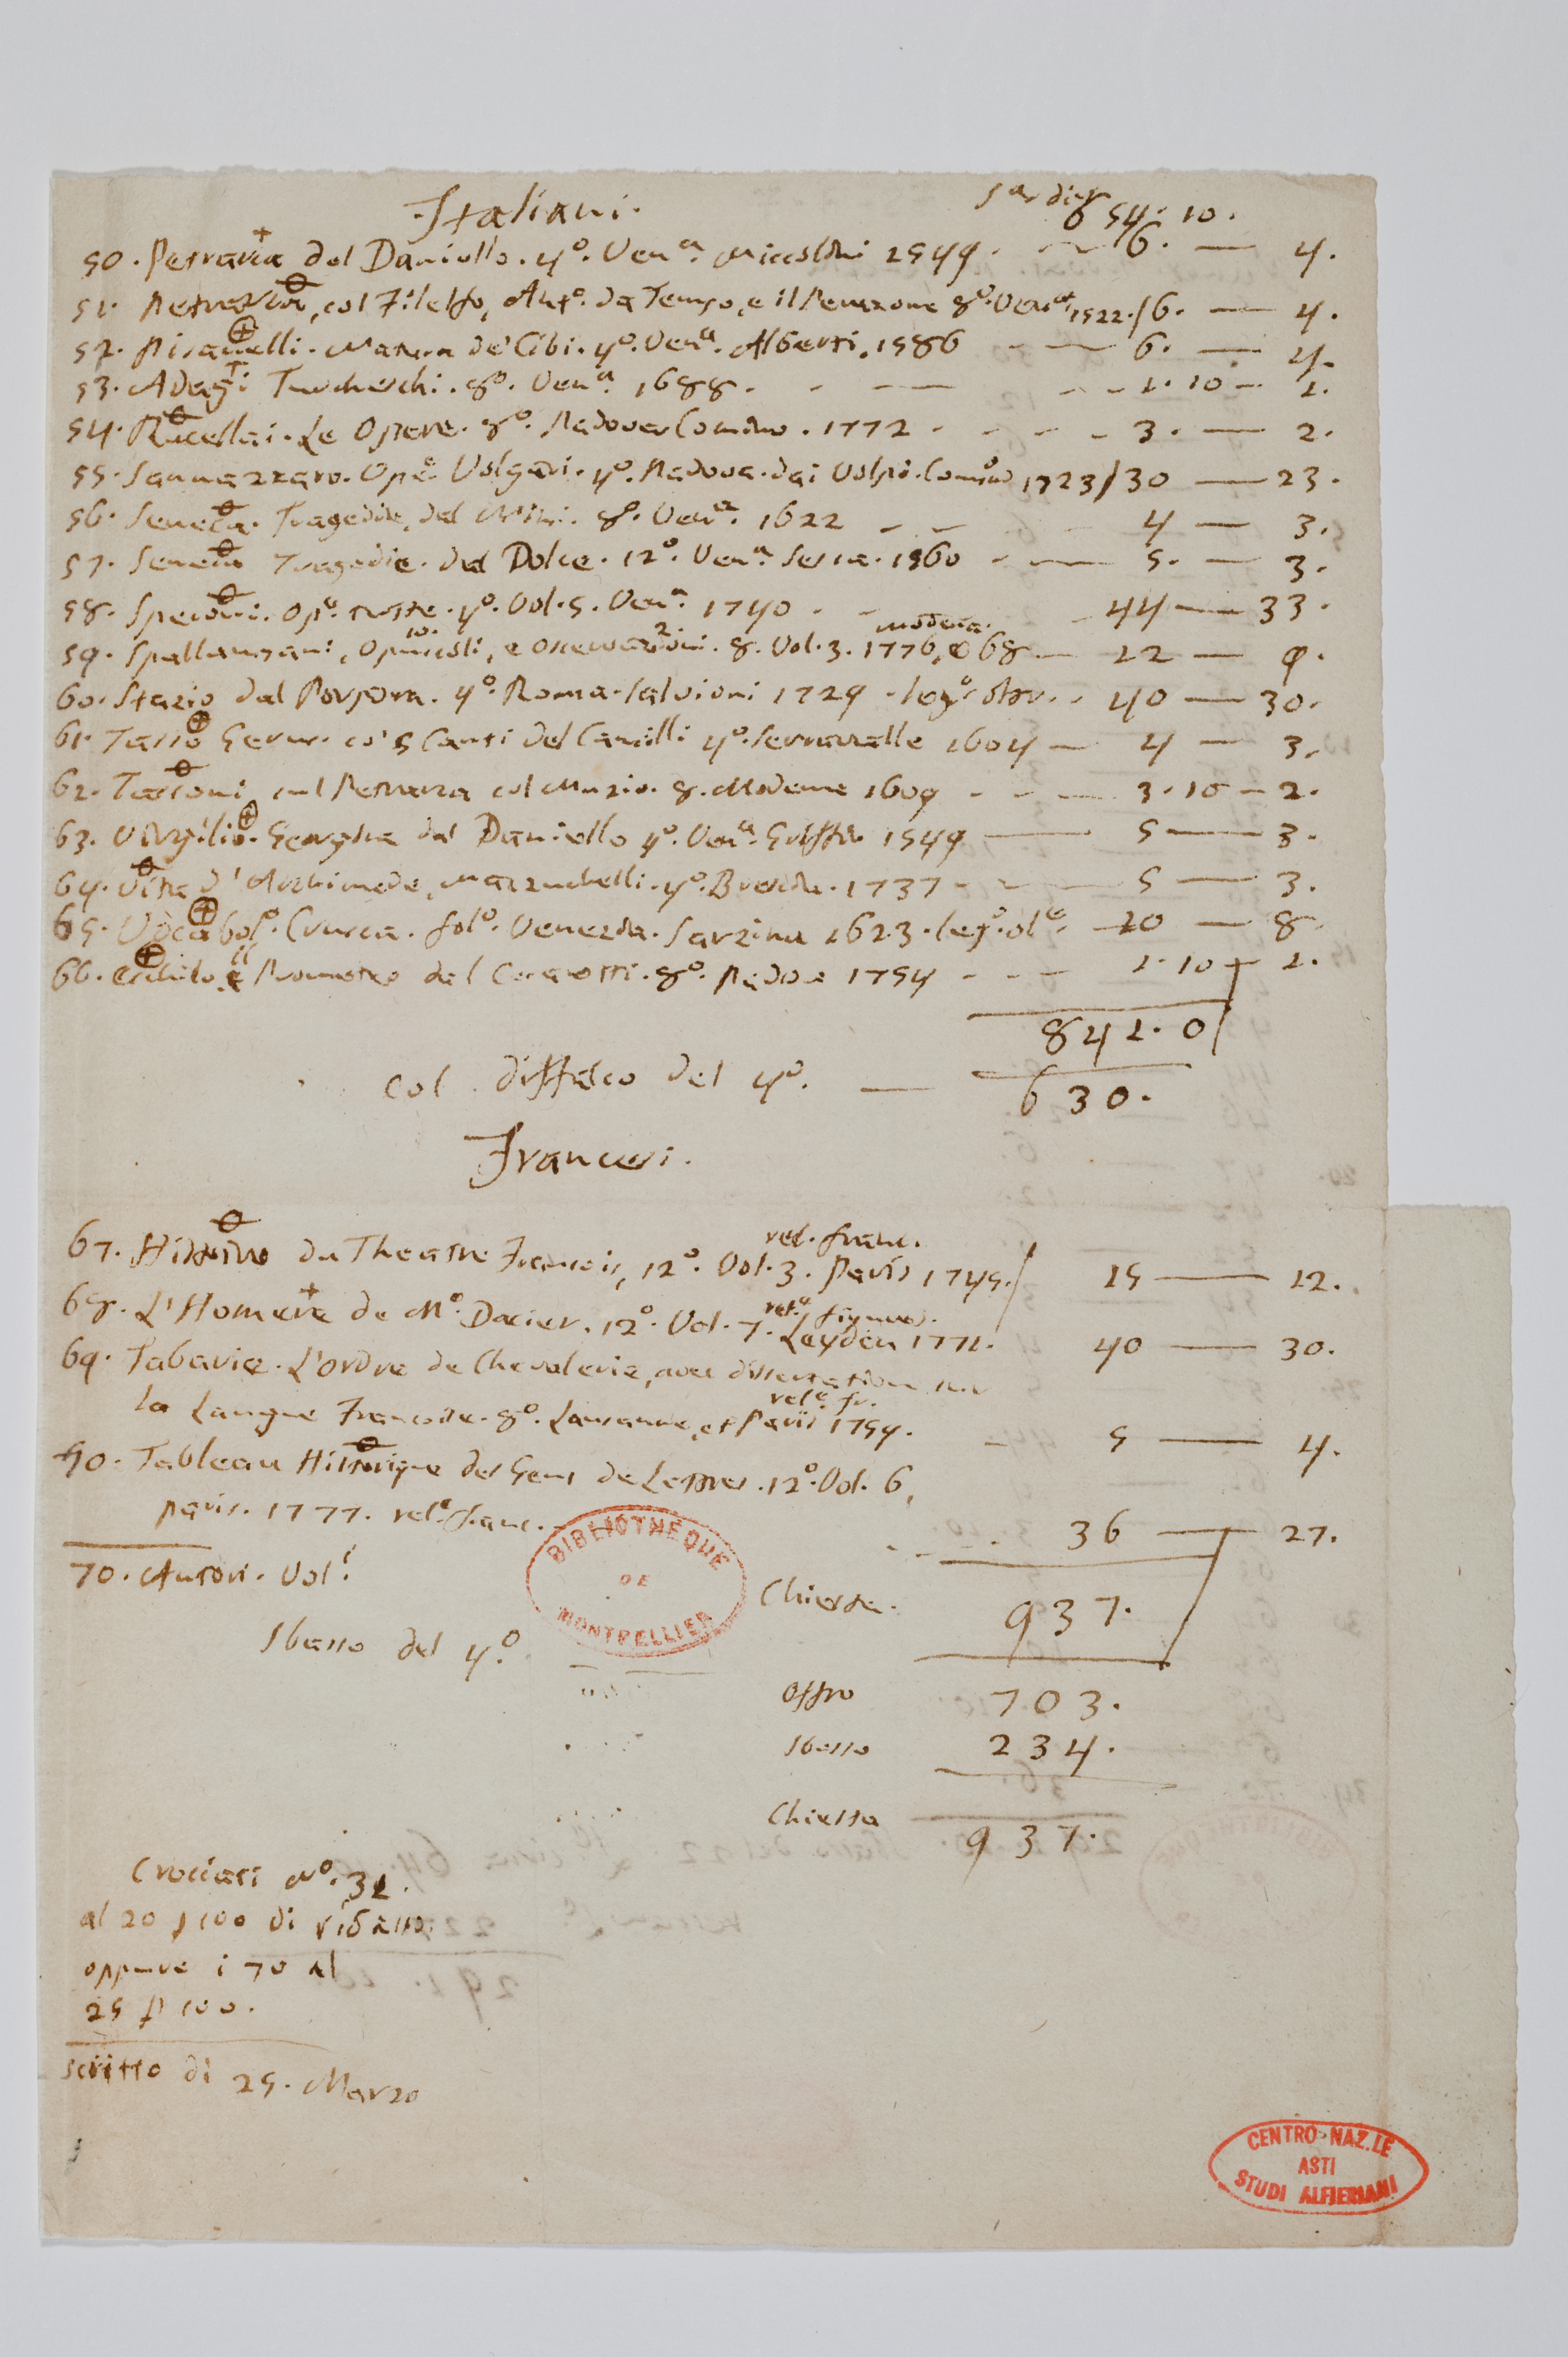 Italiani.
654. 10.
50. Petrarca del Daniello. 4º. Venª. 1549. — 6. — 4.
51. Petrarca, col Filelfo, Antº. da Tempo, e il 8º. Venª. 1522./6. — 4.
52. Pisanelli. Natura de' Cibi. 4º. Venª. Alberti. 1586 — 6. — 4.
53. Adagi Turcheschi. 8º. Venª. 1688. — 1. 10 — 1.
54. Rucellai. Le Opere. 8º. Padova Comino. 1772 . - - - 3. — 2.
55. Sannazzaro. Ope Volgari. 4º. Padova. dai Volpi. Comino 1723/30 — 23.
56. Seneca. Tragedie, del 8º. Venª. 1622 — 4 — 3.
57. Seneca Tragedie. del Dolce. 12º. Venª. Sessa. 1560 — 5. — 3.
58. Speroni. Opº. tutte. 4º. Vol. 5. Venª. 1740 . - 44 — 33.
59. Spallanzani, Opuscoli, e Osservazioni. 8. Vol. 3. 1776, e 68 — 12 — 9.
modena.
60. Stazio dal Porpora. 4º. Roma. Salvioni 1729 . legº. oltr. . 40 — 30.
61. Tasso Gerus. co' 5 Canti del Camilli 4º. Serravalle 1604 — 4 — 3.
62. Tassoni, sul Petrarca col Muzio. 8. Modena 1609 - - — 3. 10 — 2.
63. Virgilio. Georgica dal Daniello 4º. Venª. Griffio 1549 — 5 — 3.
64. Vita d'Archimede, Mazzuchelli. 4º. Brescia. 1737 - - — 5 — 3.
65. Vocabolº. Crusca. folº. Venezia. Sarzina 1623. legº. olª. 10 — 8.
66. Eschilo, il Prometeo del Cesarotti. 8º. Padova 1754 - - — 1. 10 — 1.
841. 0
col diffalco del 4º. — 630.
Francesi.
67. Histoire du Theatre Francois, 12º. Vol. 3. Paris 1745. / 15 — 12.
rel. franc.
68. L'Homere de Mº. Dacier. 12º. Vol. 7. Leyden 1771. 40 — 30.
relª. figures.
69. Tabarie. L'ordre de Chevalerie, avec dissertation sur
la Langue Francoise. 8º. Lausanne, et Paris 1759. — 5 — 4.
relº. fr.
70. Tableau Historique des Gens de Lettres. 12º. Vol. 6,
Paris. 1777. relº. franc. - 36 — 27.
70. Autori. Vol.
BIBLIOTHEQUE DE MONTPELLIER
Chiesta. 937.
Sbasso del 4º.
Offro 703.
Sbasso 234.
Chiesta 937.
Crociati Nº. 31.
al 20 p 100 di ribasso.
oppure i 70 al
25 p 100.
scritto di 25. Marzo
CENTRO NAZ.LE
ASTI
STUDI ALFIERIANI